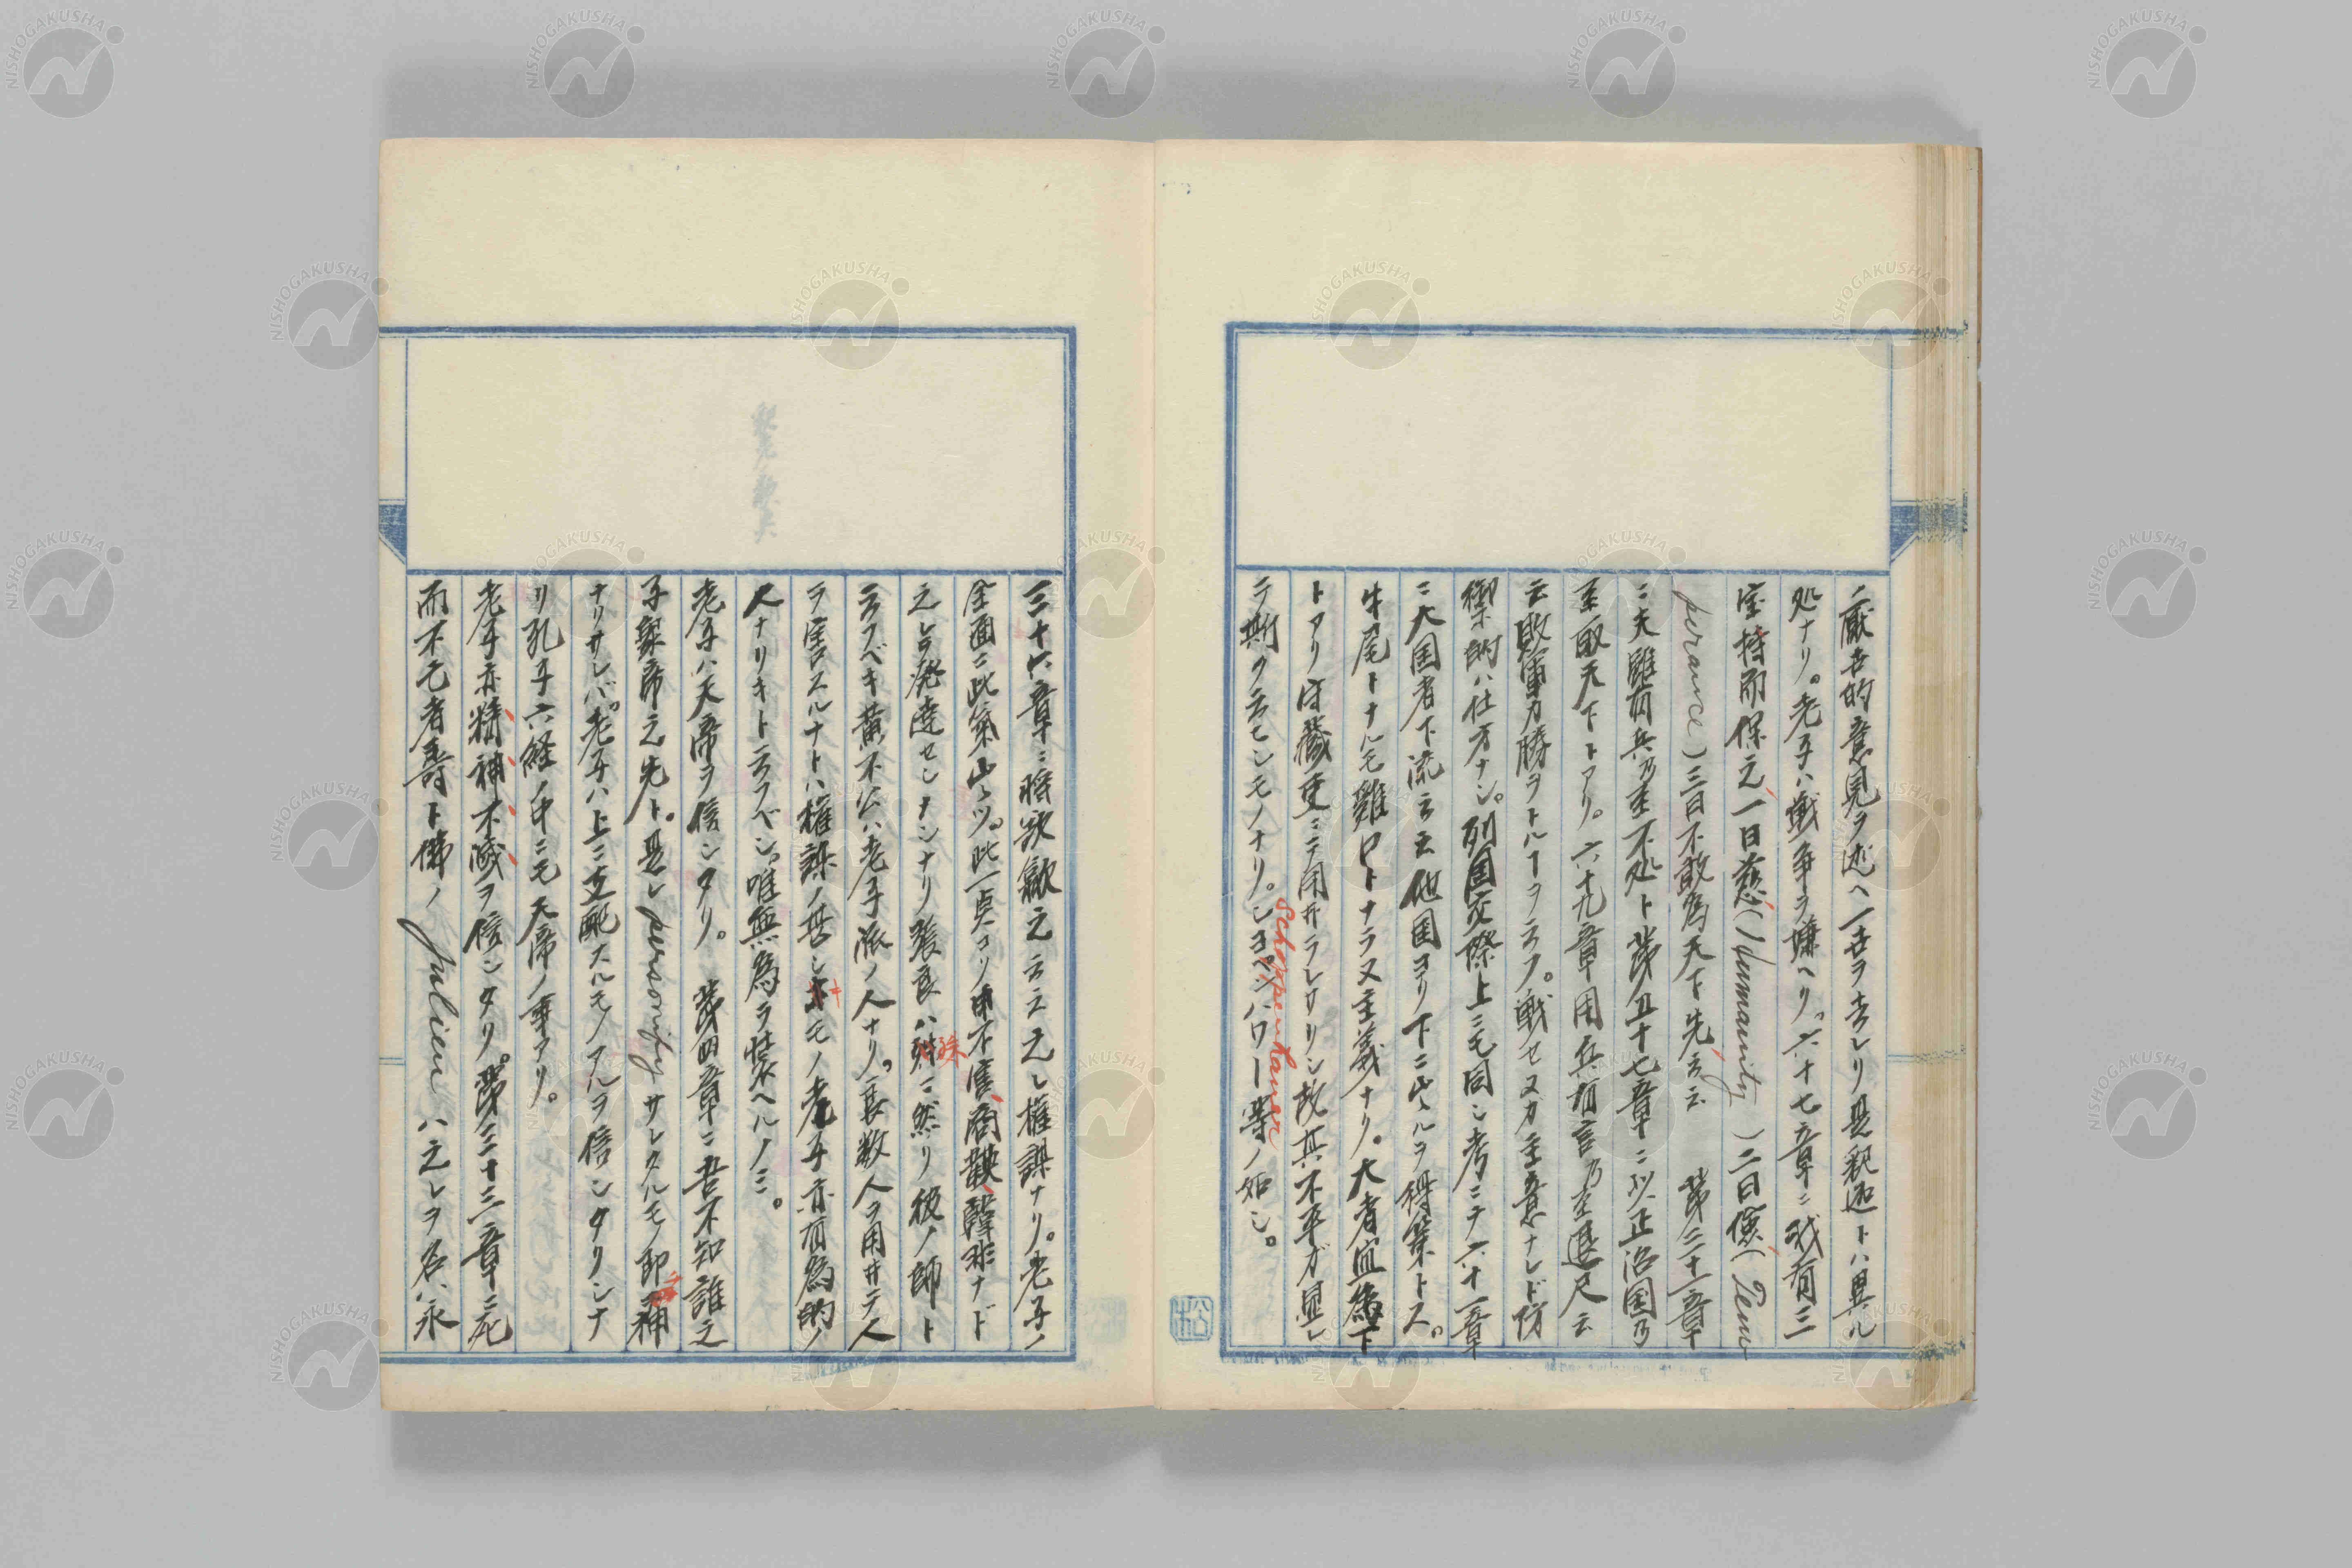 ノ厭世的意見ヲ述ヘ一世ヲ去レリ是釈迦トハ異ル
処ナリ。老子ハ戦争ヲ嫌ヘリ。六十七章ニ我有三
宝持而保之一曰慈(Humanity)二曰儉(Tem
perance)三曰不敢為天下先云云 第三十一章
ニ夫雖有兵乃至不処ト第五十七章ニ以正治国乃
至取天下トアリ。六十九章用兵有言乃至退尺云
云敗軍力勝ヲトルヿヲ云フ。戦セヌガ主意ナレド防
禦的ハ仕方ナシ。列国交際上ニモ同シ考ニテ六十一章
ニ大国者下流云云他国ヨリ下ニ出ルヲ得策トス。
牛尾トナルモ鶏口トナラヌ主義ナリ。大者宜為下
トアリ守蔵吏ニテ用井ラレザリシ故其不平ガ显レ
テ斯ク云モシモノナリ。ショペンハワー等ノ如シ。
Schoppenhauer
三十六章ニ将欲歙之云云之レ権謀ナリ。老子ノ
全面ニ此気出ヅ。此一点ヨリ申不害商鞅韓非ナド
之レヲ発達セシナンナリ張良ハ殊ニ然リ彼ノ師ト
云フベキ黄石公ハ老子派ノ人ナリ。一哀数人ヲ用井テ人
ヲ害ロスルナトハ権謀ノ甚シキモノ老子亦有為的ノ
人ナリキト云フベシ。唯無為ヲ装ヘルノミ。
老子ハ天帝ヲ信シタリ。 第四章ニ吾不知誰之
子象帝之先ト。是レpersonityサレタルモノ即神
ナリサレバ。老子ハ上ニ支配スルモノアルヲ信シタリシナ
リ孔子六経ノ中ニモ天帝ノ事アリ。
老子亦精神不滅ヲ信シタリ。第三十三章ニ死
而不亡者寿ト佛ノJulienハ之レヲ名ハ永
松
NISHOGAKUSHA